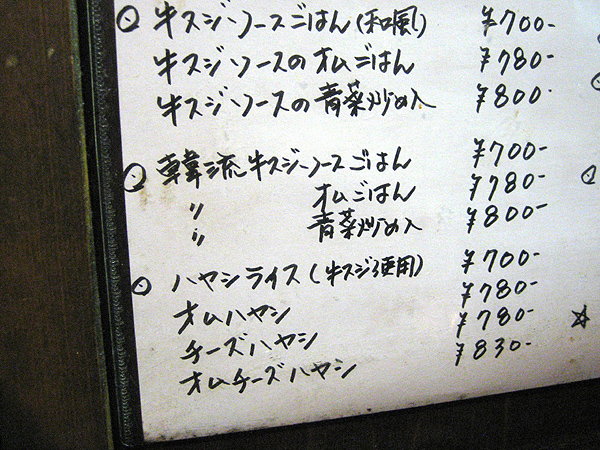 牛スジソースごはん(和風) ¥700-
牛スジソースのオムごはん ¥780-
牛スジソースの青菜炒め入 ¥800-
韓流牛スジソースごはん ¥700-
〃 オムごはん ¥780-
〃 青菜炒め入 ¥800-
ハヤシライス(牛スジ使用) ¥700-
オムハヤシ ¥780-
チーズハヤシ ¥780-
オムチーズハヤシ ¥830-